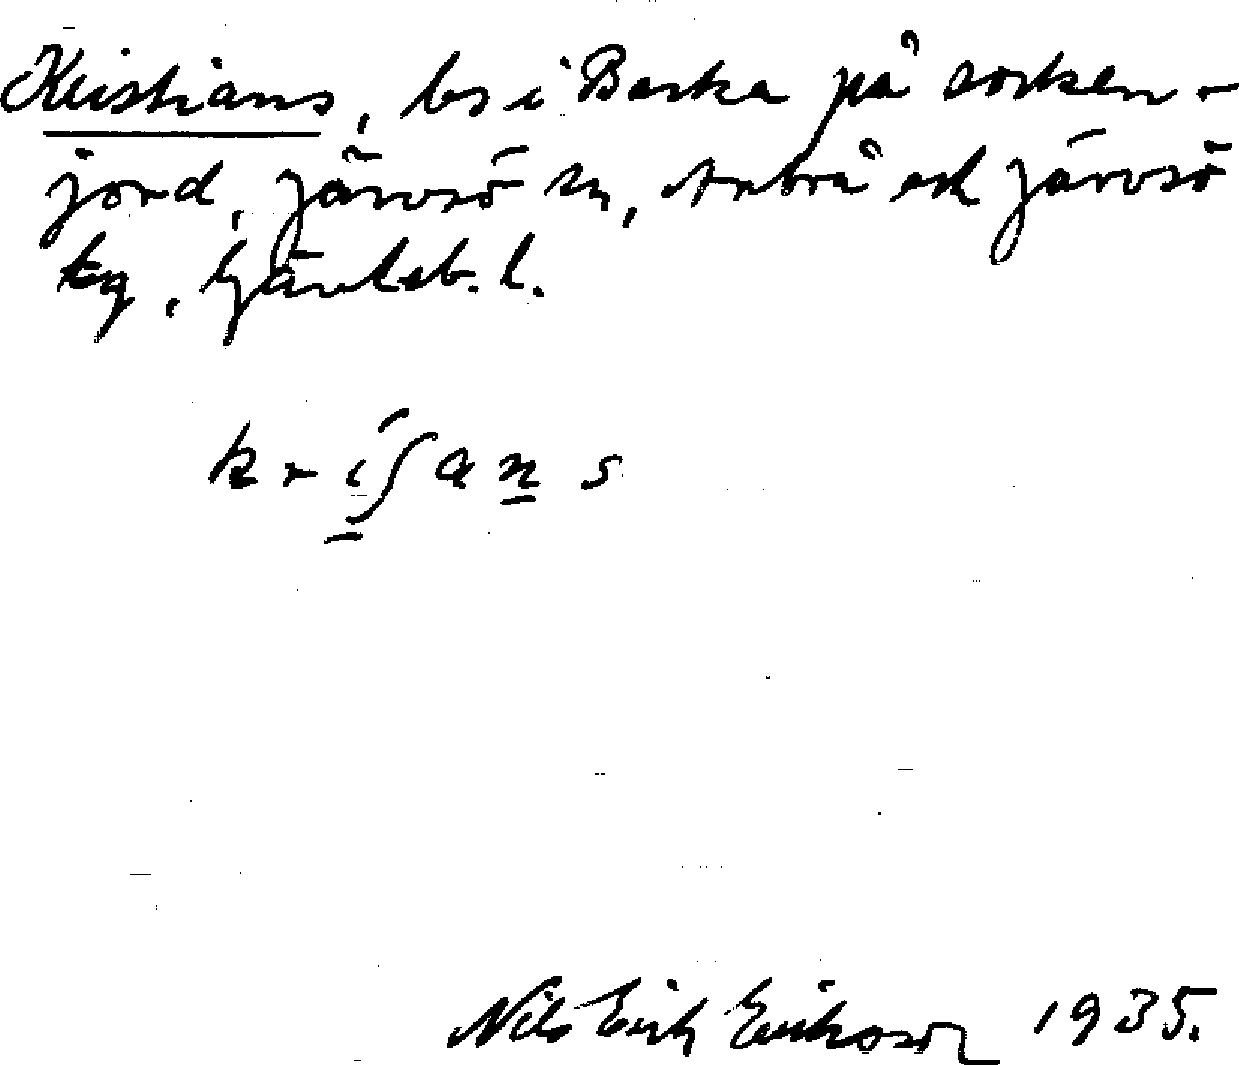 Kristians, bs i Barka på socken-
jord, Järvsö sn, Arbrå och Järvsö
tg, Gävleb. l.
k r i ʃ a n s
Nils Erik Eriksson 1935.